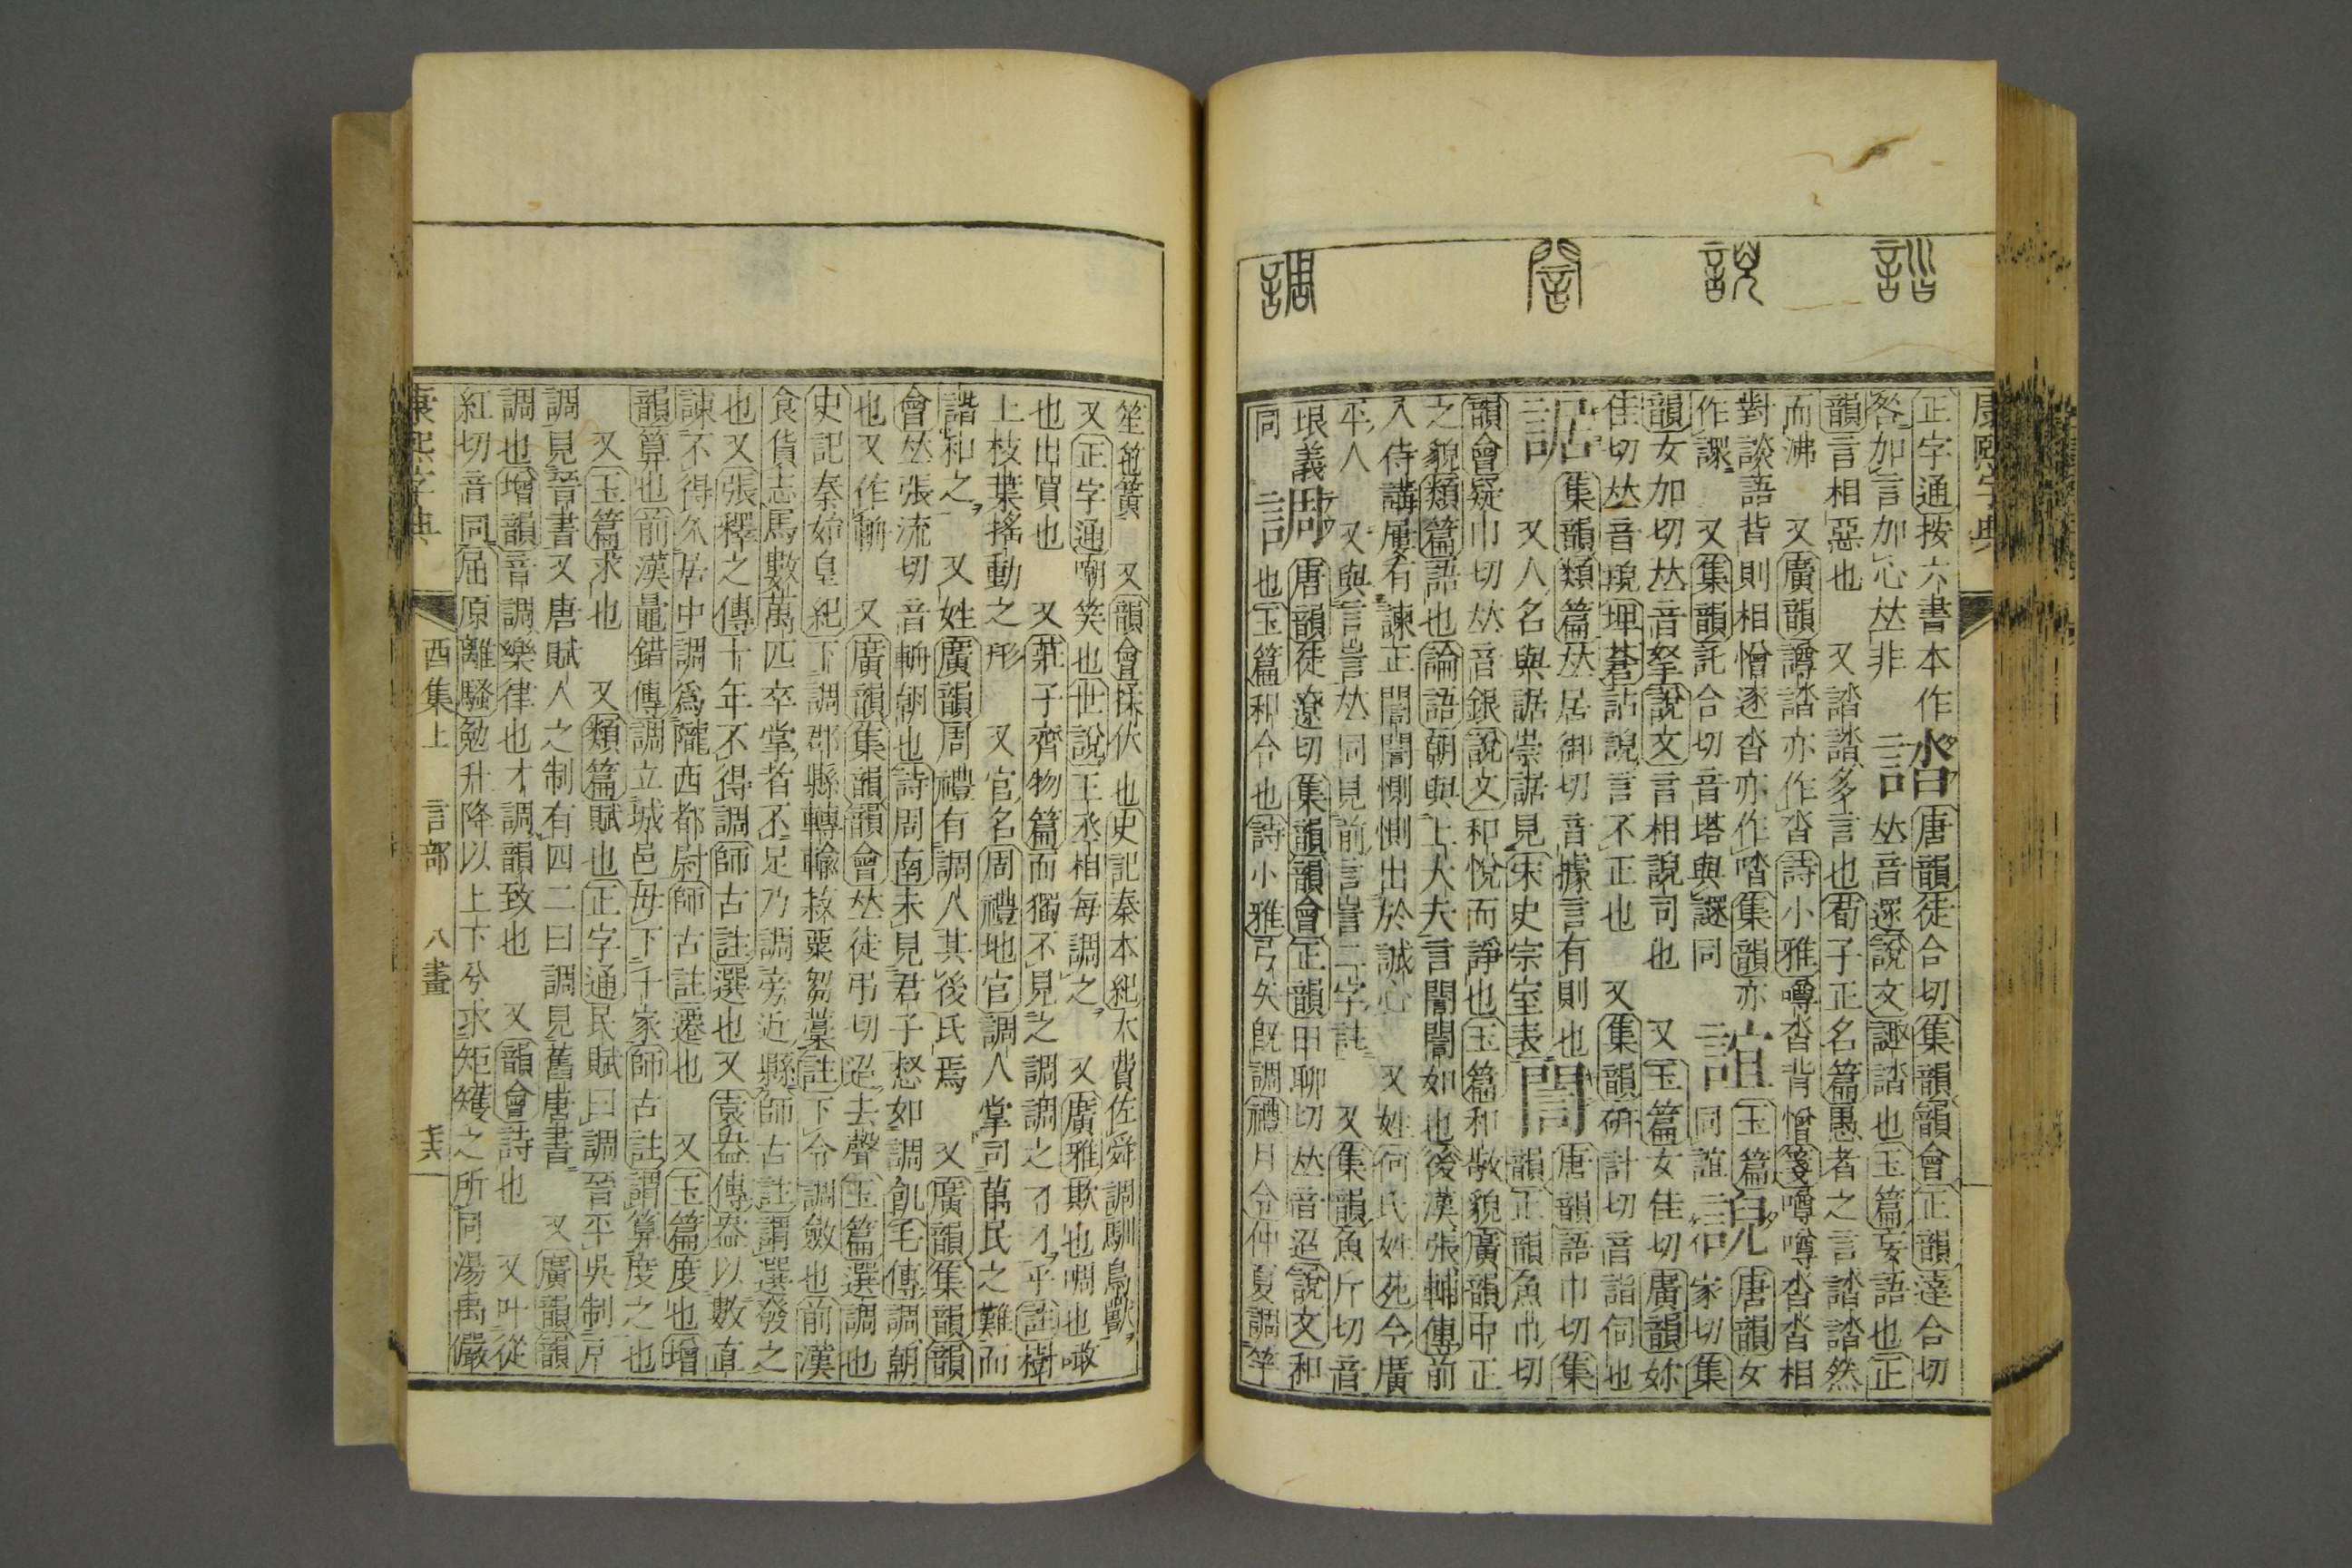 康熙字典
正字通按六書本作諮唐韻徒合切集韻韻會正韻達合切
咎加言加心𠀤非 誻𠀤音遝說文𧮫誻也玉篇妄語也正
韻言相惡也 又誻誻多言也荀子正名篇愚者之言誻誻然
而沸 又廣韻譐誻亦作沓詩小雅噂沓背憎箋噂噂沓沓相
對談語背則相憎逐沓亦作喒集韻亦
作𧪞 又集韻託合切音塔與𧪞同 誼玉篇同誼 誽唐韻女家切集
韻女加切𠀤音拏說文言相誽司也 又玉篇女佳切廣韻妳
佳切𠀤音䘽埤蒼詀誽言不正也 又集韻硏計切音詣伺也
䛯集韻類篇𠀤居御切音據言有則也
又人名與䛯崇䛯見宋史宗室表 誾唐韻語巾切集韻正韻魚巾切
韻會疑巾切𠀤音銀說文和悅而諍也玉篇和敬貌廣韻中正
之貌類篇語也論語朝與上大夫言誾誾如也後漢張輔傳前
入侍講屢有諫正誾誾惻惻出於誠心 又姓何氏姓苑今廣
平人 又與言訔𠀤同見前言訔二字註 又集韻魚斤切音
垠義同 調唐韻徒遼切集韻韻會正韻田聊切𠀤音迢說文和
也玉篇和合也詩小雅弓矢旣調禮月令仲夏調竽
誻
誽
誾
調
笙竾簧 又韻會揉伏也史記秦本紀大費佐舜調馴鳥獸
又正字通嘲笑也世說王丞相每調之 又廣雅欺也啁也噉
也出賣也 又莊子齊物篇而獨不見之調調之刁刁乎註樹
上枝葉搖動之形 又官名周禮地官調人掌司萬民之難而
諧和之 又姓廣韻周禮有調人其後氏焉 又廣韻集韻韻
會𠀤張流切音輈朝也詩周南未見君子惄如調飢毛傳調朝
也又作輖 又廣韻集韻韻會𠀤徒弔切迢去聲玉篇選調也
史記秦始皇紀下調郡縣轉輸菽粟芻藁註下令調斂也前漢
食貨志馬數萬匹卒掌者不足乃調旁近縣師古註謂選發之
也又張釋之傳十年不得調師古註選也又袁盎傳盎以數直
諫不得久居中調爲隴西都尉師古註遷也 又玉篇度也增
韻算也前漢鼂錯傳調立城邑毋下千家師古註謂算度之也
又玉篇求也 又類篇賦也正字通民賦曰調晉平吳制戸
調見晉書又唐賦人之制有四二曰調見舊唐書 又廣韻韻
調也增韻音調樂律也才調韻致也 又韻會詩也 又叶從
紅切音同屈原離騷勉升降以上下兮求矩矱之所同湯禹儼
康熙字典 酉集上 言部 八畫